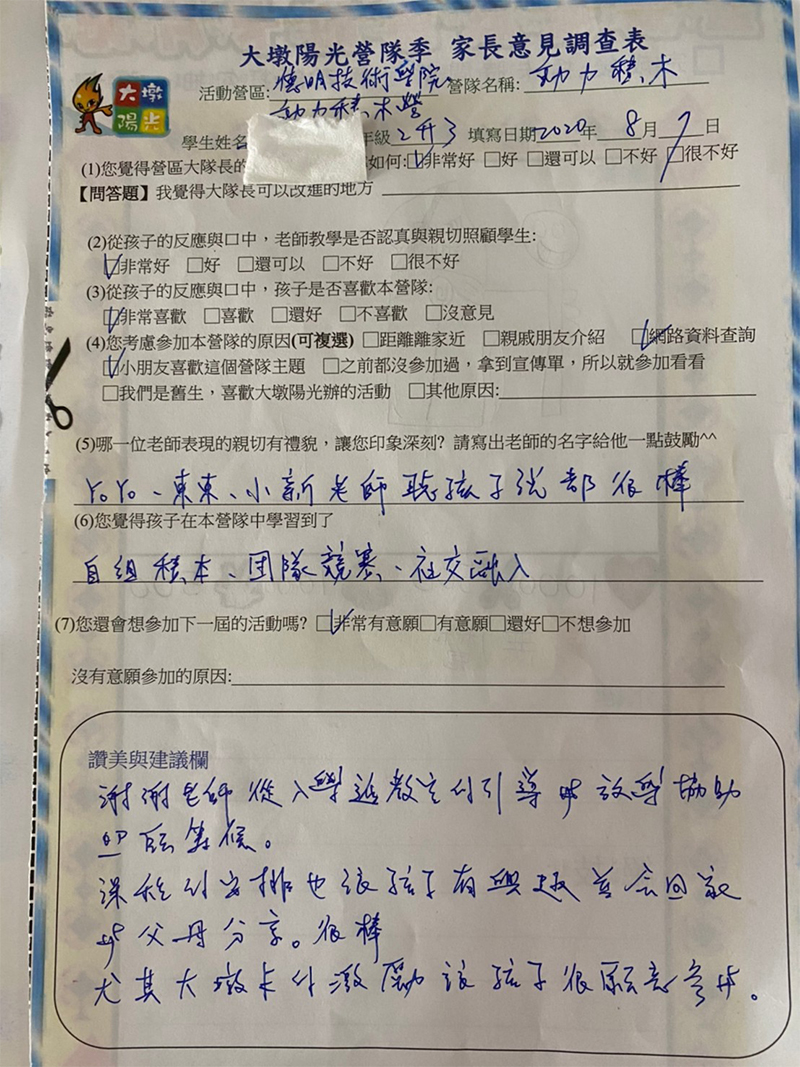 大墩陽光營隊季 家長意見調查表
大墩
陽光
活動營區:德明技術學院 營隊名稱:動力積木
動力積木營
學生姓名 年級2升3 填寫日期2020年8月7日
(1)您覺得營區大隊長的 如何:☑非常好 □好 □還可以 □不好 □很不好
【問答題】我覺得大隊長可以改進的地方
(2)從孩子的反應與口中，老師教學是否認真與親切照顧學生:
☑非常好 □好 □還可以 □不好 □很不好
(3)從孩子的反應與口中，孩子是否喜歡本營隊:
☑非常喜歡 □喜歡 □還好 □不喜歡 □沒意見
(4)您考慮參加本營隊的原因(可複選) □距離離家近 □親戚朋友介紹 ☑網路資料查詢
☑小朋友喜歡這個營隊主題 □之前都沒參加過，拿到宣傳單，所以就參加看看
□我們是舊生，喜歡大墩陽光辦的活動 □其他原因:
(5)哪一位老師表現的親切有禮貌，讓您印象深刻? 請寫出老師的名字給他一點鼓勵^^
YoYo、東東、小新老師聽孩子說都很棒
(6)您覺得孩子在本營隊中學習到了
自組積木、團隊競賽、社交融入
(7)您還會想參加下一屆的活動嗎? ☑非常有意願□有意願□還好□不想參加
沒有意願參加的原因:
讚美與建議欄
謝謝老師從入學進教室的引導與放學協助
等候。
課程的安排也很孩子有興趣並会回家
與父母分享。很棒
尤其大墩卡的激勵讓孩子很願意參與。